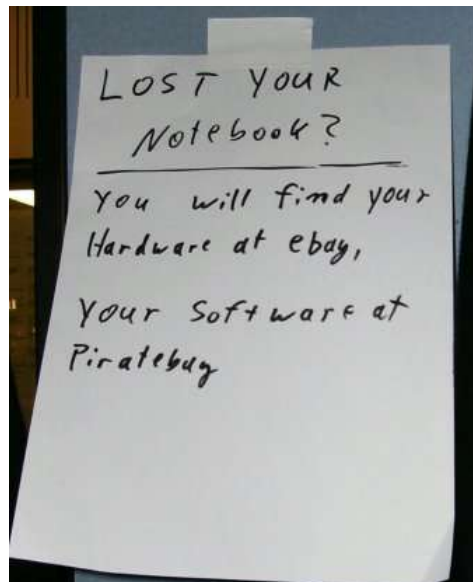 LOST YOUR
Notebook?
You will find your
Hardware at ebay,
Your Software at
Piratebay